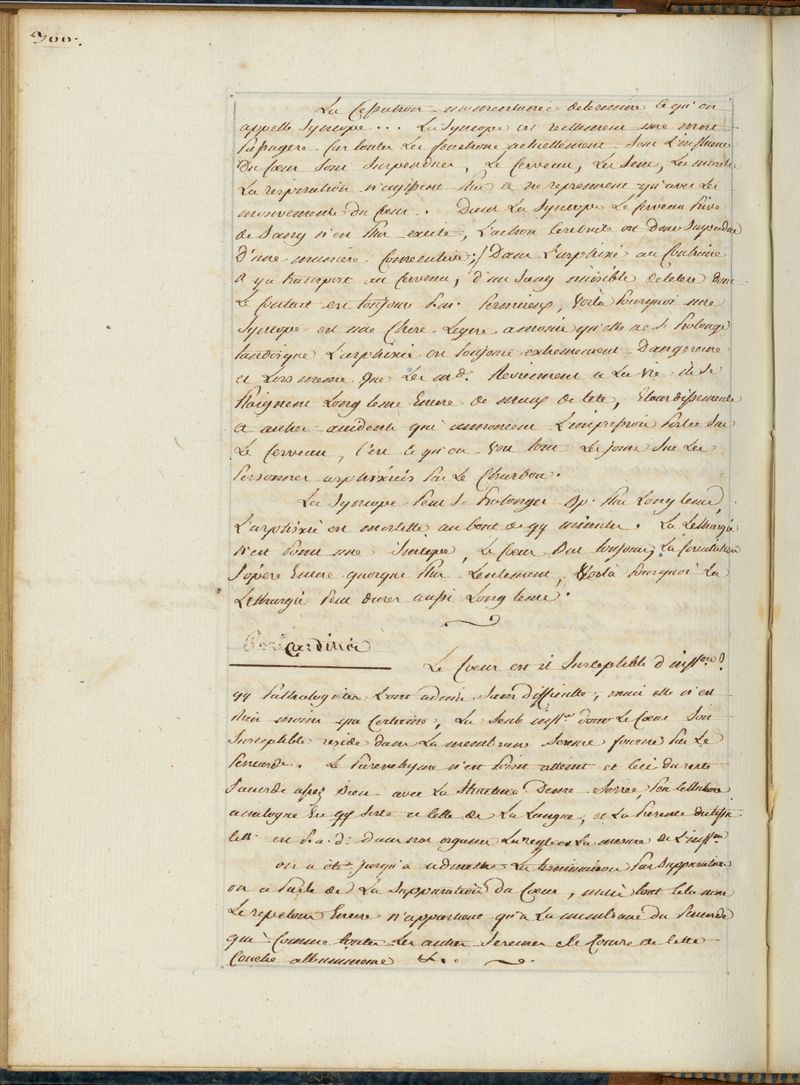 300.
La Cessation momentanée determine ce qu'on
appelle Syncope... La Syncope est reellement une mort
passagere Car toutes les fonctions actuellement sous l'influence
du Coeur sont suspendues, Le Cerveau, les sens, les muscles
La respiration n'agissent plus et ne reprennent qu'avec les
mouvements du Coeur. Dans la Syncope Le Cerveau privé
de Sang n'en plus excité, L'action Cerebrale est donc suspendue
d'une maniere Consecutive; / Dans L'asphixie au Contraire
il y a transport au Cerveau, d'un Sang nuisible deletere dont
Le Contact est toujours pernicieux, voilà pourquoi une
Syncope est une Chose Legere a moins qu'elle ne se prolonge
tandisque L'asphixie est toujours extremement Dangereuse
et Lors meme que Les md. Reviennent a La vie ils se
plaignent Longtems Encore de maux de tete, Etourdissements
et autres accidents qui annoncent L'impression portée sur
Le Cerveau, C'est ce qu'on voit tous Les jours sur Les
personnes asphixiées par Le Charbon.
La Syncope peut se prolonger plus Longtems,
L'asphixie est mortelle au bout de qq minutes. La Lethargie
n'est point une Syncope, Le Coeur Bat toujours, La Circulation
s'opère Encore quoique plus Lentement, Voilà pourquoi La
Lethargie peut durer aussi Longtems.
Pericardite
Le Coeur est il Susceptible d'inflon?
qq pathologistes L'ont admis sans difficulté, mais elle n'est
rien moins que Certaine, La Seule inflon dont Le Coeur soit
Susceptible reside dans La membrane Sereuse fournie par Le
pericarde. Le Parenchyme n'est point atteint et Ceci du reste
s'accorde assez Bien avec La Structure Dense, Serrée, Son tissu
analogue En qq sorte a Celle de La Langue, et La presence du tissu
cell. en p. a. d. dans nos organes La regle et La mesure de L'inflon
on a été jusqu'à admettre La terminaison par Suppuration
on a parlé de La Suppuration du Coeur, mais tout Cela nous
Le repetons Encore n'appartient qu'à La membrane du pericarde
qui Comme toutes Les autres Sereuses se Couvre de Cette
Couche albumineuse &c.